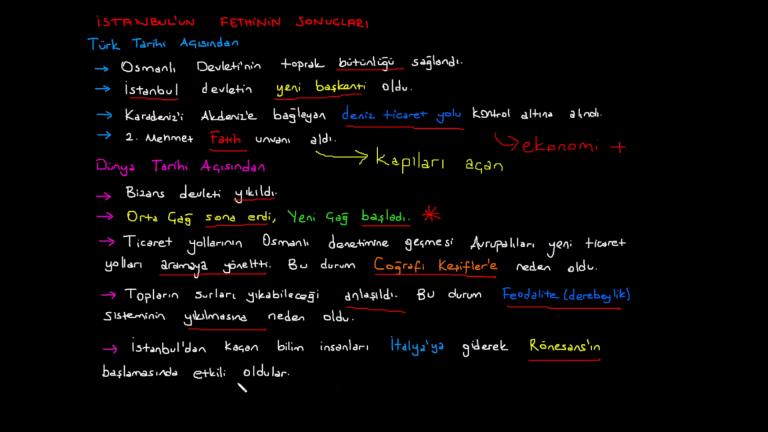 İSTANBUL'UN FETHİNİN SONUÇLARI
Türk Tarihi Açısından
→ Osmanlı Devleti'nin toprak bütünlüğü sağlandı.
→ İstanbul devletin yeni başkenti oldu.
→ Karadeniz'i Akdeniz'e bağlayan deniz ticaret yolu kontrol altına alındı.
→ ekonomi +
→ 2. Mehmet Fatih unvanı aldı.
→ kapıları açan
Dünya Tarihi Açısından
→ Bizans devleti yıkıldı.
→ Orta Çağ sona erdi, Yeni Çağ başladı. *
→ Ticaret yollarının Osmanlı denetimine geçmesi Avrupalıları yeni ticaret
yolları aramaya yöneltti. Bu durum Coğrafi Keşifler'e neden oldu.
→ Topların surları yıkabileceği anlaşıldı. Bu durum Feodalite (derebeylik)
sisteminin yıkılmasına neden oldu.
→ İstanbul'dan kaçan bilim insanları İtalya'ya giderek Rönesans'ın
başlamasında etkili oldular.